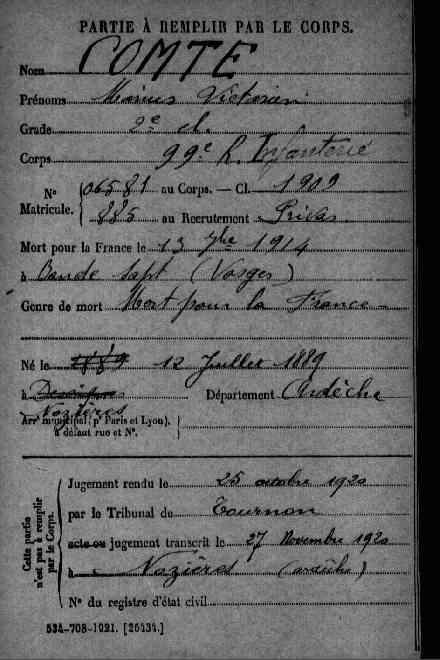 PARTIE À REMPLIR PAR LE CORPS.
Nom COMTE
Prénoms Marius Victorien
Grade 2e cl.
Corps 99e R. Infanterie
No Matricule. 06581 au Corps. — Cl. 1909
885 au Recrutement Privas
Mort pour la France le 13 7bre 1914
à Bande Sapt (Vosges)
Genre de mort Mort pour la France
Né le 1889 12 Juillet 1889
à Département Ardèche
Nozières
Arrt municipal (pr Paris et Lyon),
à défaut rue et No.
Cette partie n'est pas à remplir par le Corps.
Jugement rendu le 25 octobre 1920
par le Tribunal de Tournon
acte ou jugement transcrit le 27 Novembre 1920
à Nozières (Ardèche)
No du registre d'état civil
534-708-1921. [26434.]